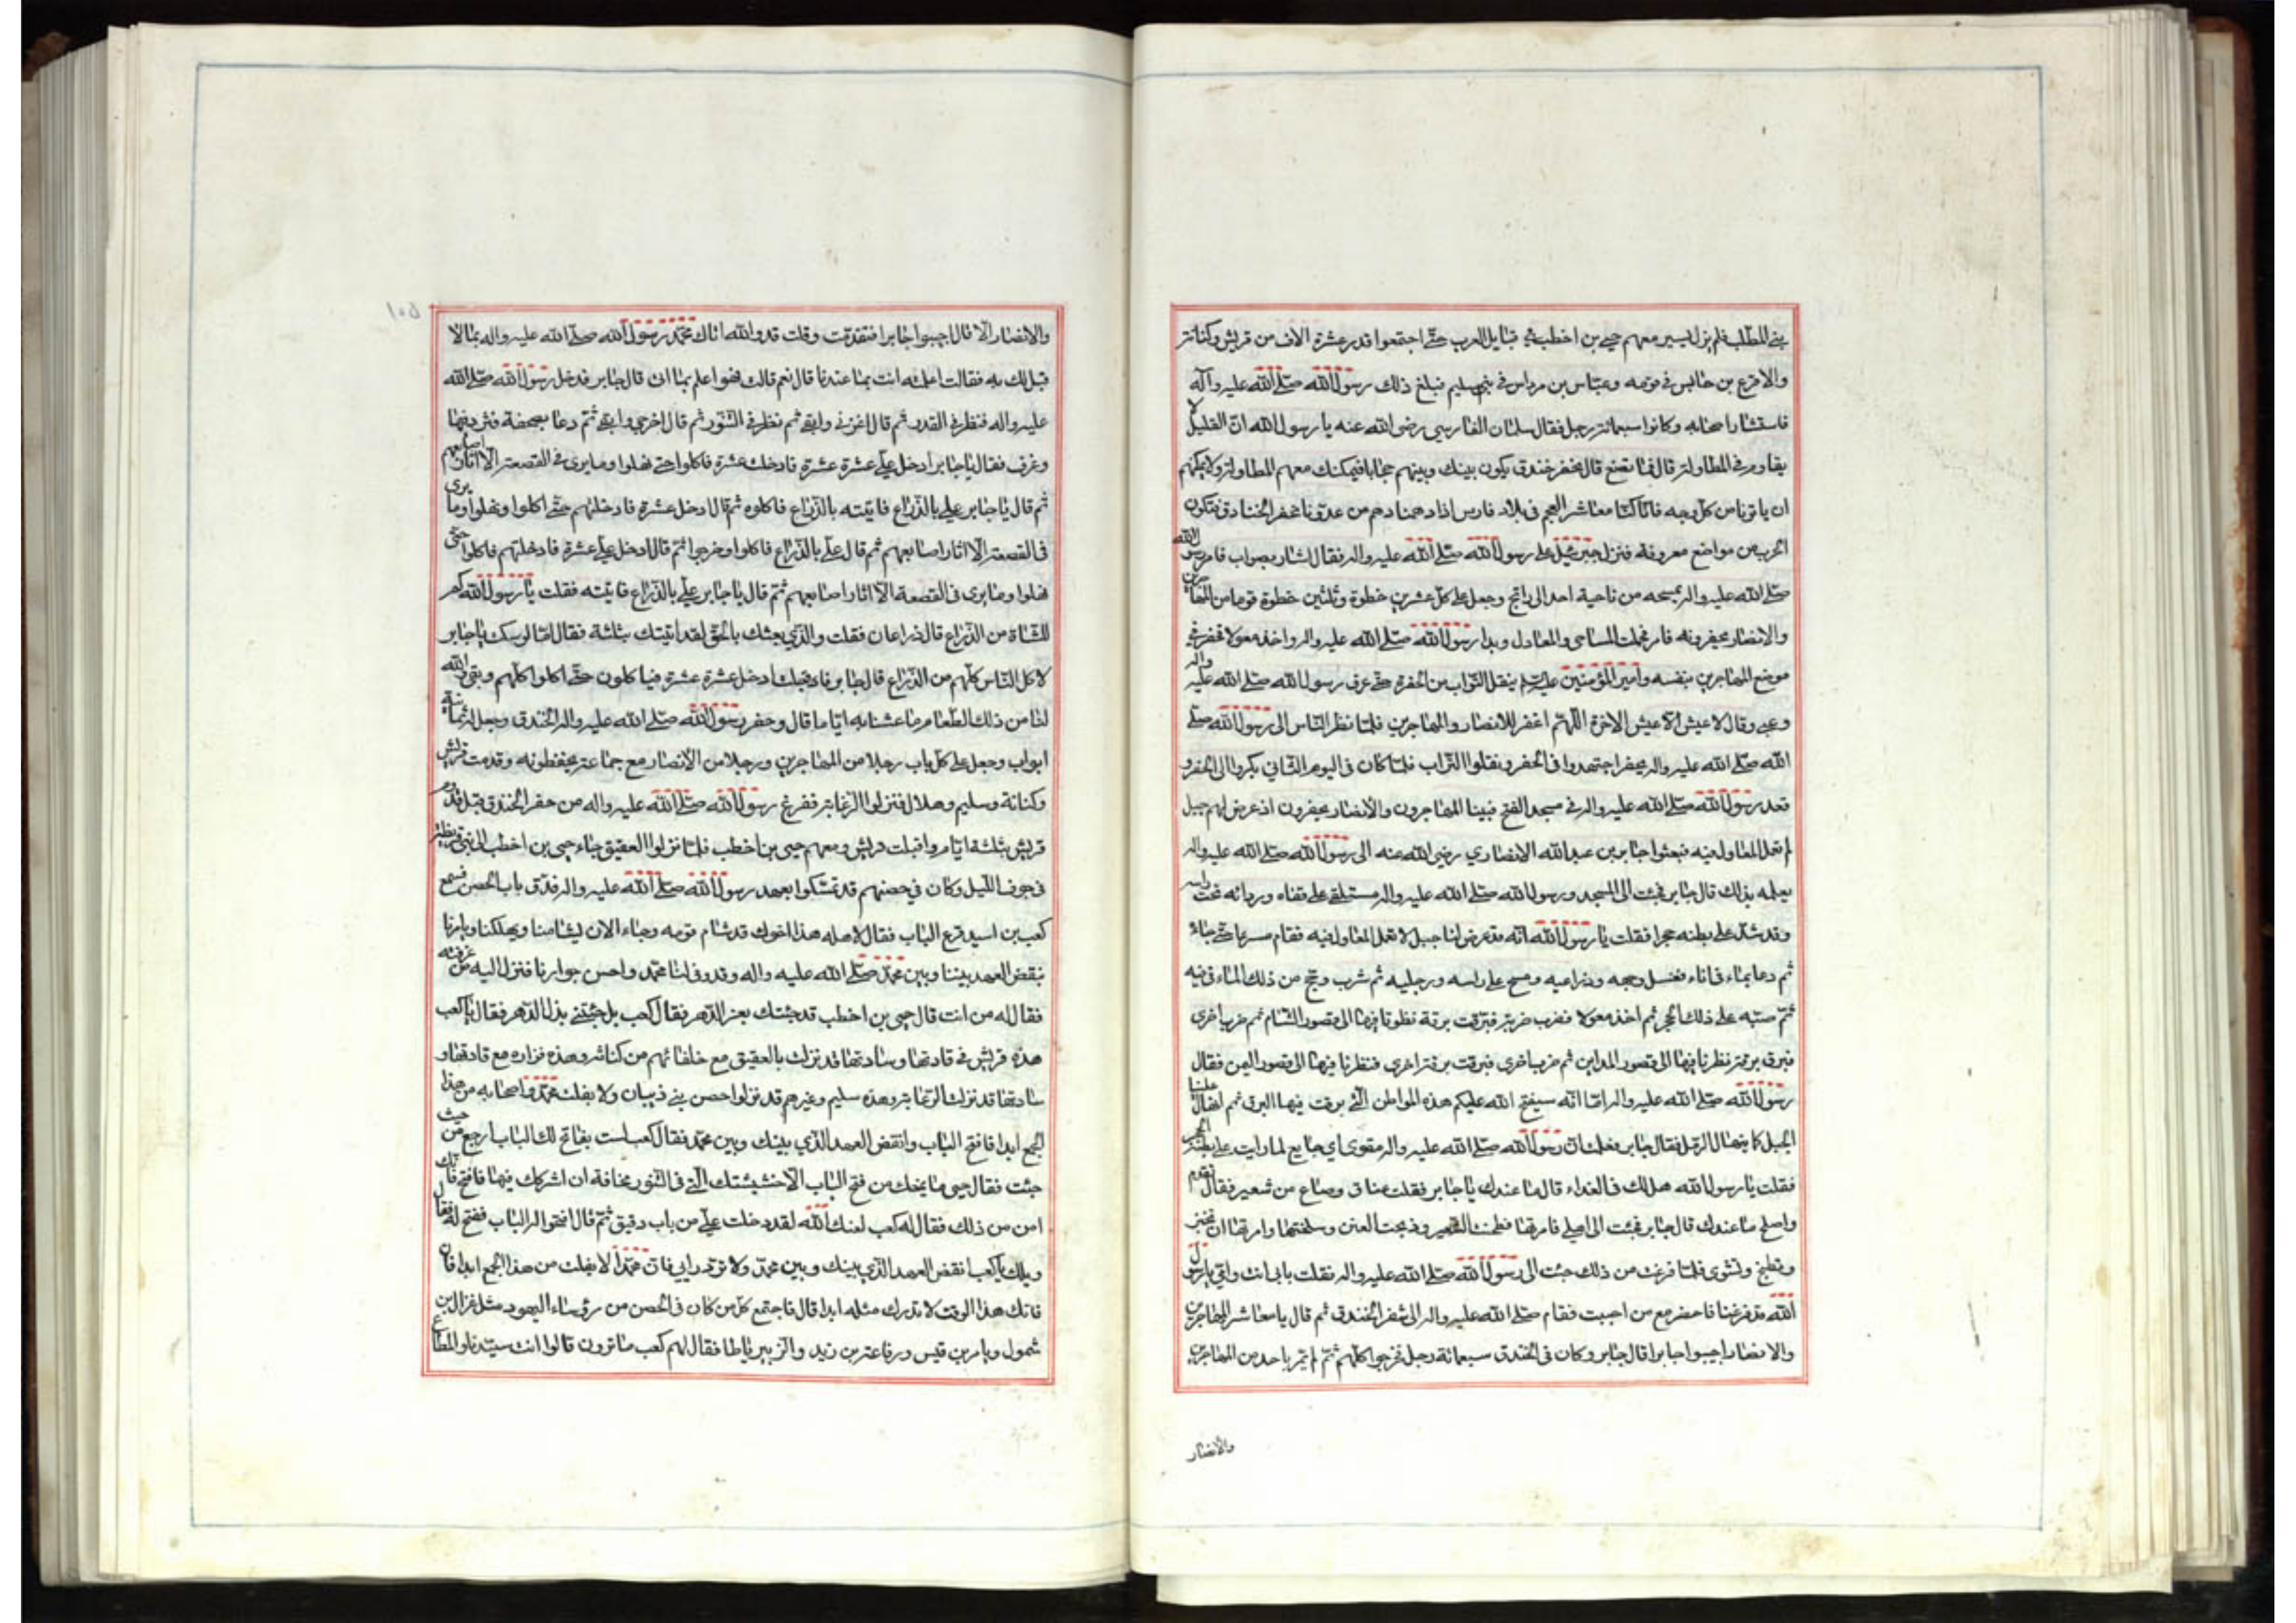 بني المطلب فلم يزل يسير معهم حيي بن اخطب في قبايل العرب حتى اجتمعوا قدر عشرة الاف من قريش وكنانة
والاقرع بن حابس في قومه وعباس بن مرداس في بني سليم فبلغ ذلك رسول الله صلى الله عليه وآله
فاستشار اصحابه وكانوا سبعمائة رجل فقال سلمان الفارسي رضي الله عنه يا رسول الله ان القليل لا
يقاوم في المطاولة قال فما نصنع قال نحفر خندق يكون بينك وبينهم حجابا فيمكنك معهم المطاولة ولا يمكنهم
ان ياتونا من كل وجه فانا كنا معاشر العجم في بلاد فارس اذا دهمنا دهم من عدونا نحفر الخنادق فتكون
الحرب من مواضع معروفة فنزل جبرئيل على رسول الله صلى الله عليه واله فقال اشار بصواب فامر رسول الله
صلى الله عليه واله بمسحه من ناحية احد الى راتج وجعل على كل عشرين خطوة وثلثين خطوة قوما من المهاجرين
والانصار يحفرونه فامر فحملت المساحي والمعاول وبدا رسول الله صلى الله عليه واله واخذ معولا فحفر في
موضع المهاجرين بنفسه وامير المؤمنين عليه السلم ينقل التراب من الحفرة حتى عرق رسول الله صلى الله عليه واله
وعيي وقال لا عيش الا عيش الاخرة اللهم اغفر للانصار والمهاجرين فلما نظر الناس الى رسول الله صلى
الله صلى الله عليه واله يحفر اجتهدوا في الحفر ونقلوا التراب فلما كان في اليوم الثاني بكروا الى الحفر و
قعد رسول الله صلى الله عليه واله في مسجد الفتح فبينا المهاجرون والانصار يحفرون اذ عرض لهم جبل
لم تعمل المعاول فيه فبعثوا جابر بن عبد الله الانصاري رضي الله عنه الى رسول الله صلى الله عليه واله
يعلمه بذلك قال جابر فجئت الى المسجد ورسول الله صلى الله عليه واله مستلقى على قفاه وردائه تحت راسه
وقد شد على بطنه حجرا فقلت يا رسول الله انه قد عرض لنا جبل لا تعمل المعاول فيه فقام مسرعا حتى جاءه
ثم دعا بماء في اناء فغسل وجهه وذراعيه ومسح على راسه ورجليه ثم شرب ومج من ذلك الماء في فيه
ثم صبه على ذلك الحجر ثم اخذ معولا فضرب ضربة فبرقت برقة نظرنا فيها الى قصور الشام ثم ضرب اخرى
فبرق برقة نظرنا فيها الى قصور المداين ثم ضرب اخرى فبرقت برقة اخرى فنظرنا فيها الى قصور اليمن فقال
رسول الله صلى الله عليه واله اما انه سيفتح الله عليكم هذه المواطن التي برقت فيها البرق ثم انهال علينا
الجبل كما ينهال الرمل فقال جابر فعلمت ان رسول الله صلى الله عليه واله مقوى اي جايع لما رايت على بطنه الحجر
فقلت يا رسول الله هل لك في الغداء قال ما عندك يا جابر فقلت عناق وصاع من شعير فقال تقدم
واصلح ما عندك قال جابر فجئت الى اهلي فامرتها فطحنت الشعير وذبحت العنز وسلختها وامرتها ان تخبز
وتطبخ وتشوى فلما فرغت من ذلك جئت الى رسول الله صلى الله عليه واله فقلت بابي انت وامي يا رسول
الله قد فرغنا فاحضر مع من احببت فقام صلى الله عليه واله الى شفر الخندق ثم قال يا معاشر المهاجرين
والانصار اجيبوا جابرا قال جابر وكان في الخندق سبعمائة رجل فخرجوا كلهم ثم لم يمر باحد من المهاجرين
والانصار
١٥٥
والانصار الا قال اجيبوا جابرا فتقدمت وقلت قد والله اتاك محمد رسول الله صلى الله عليه واله بما لا
قبل لك به فقالت اعلمته انت بما عندنا قال نعم قالت فهو اعلم بما اتى قال جابر فدخل رسول الله صلى الله
عليه واله فنظر في القدر ثم قال اغرفي وابقي ثم نظر في التنور ثم قال اخرجي وابقي ثم دعا بصحفة فثرد فيها
وغرف فقال يا جابر ادخل علي عشرة عشرة فادخلت عشرة فاكلوا حتى نهلوا وما يرى في القصعة الا اثار اصابعهم
ثم قال يا جابر علي بالذراع فاتيته بالذراع فاكلوه ثم قال ادخل عشرة فادخلتهم حتى اكلوا ونهلوا وما يرى
في القصعة الا اثار اصابعهم ثم قال علي بالذراع فاكلوا وخرجوا ثم قال ادخل علي عشرة فادخلتهم فاكلوا حتى
نهلوا وما يرى في القصعة الا اثار اصابعهم ثم قال يا جابر علي بالذراع فاتيته فقلت يا رسول الله كم
للشاة من الذراع قال ذراعان فقلت والذي بعثك بالحق لقد اتيتك بثلثة فقال اما لو سكت يا جابر
لاكل الناس كلهم من الذراع قال جابر فاقبلت ادخل عشرة عشرة فياكلون حتى اكلوا كلهم وبقي والله
لنا من ذلك الطعام ما عشنا به اياما قال وحفر رسول الله صلى الله عليه واله الخندق وجعل له ثمانية
ابواب وجعل على كل باب رجلا من المهاجرين ورجلا من الانصار مع جماعة يحفظونه وقدمت قريش
وكنانة وسليم وهلال فنزلوا الزغابة ففرغ رسول الله صلى الله عليه واله من حفر الخندق قبل قدوم
قريش بثلثة ايام واقبلت قريش ومعهم حيي بن اخطب فلما نزلوا العقيق جاء حيي بن اخطب الى بني قريظة
في جوف الليل وكان في حصنهم قد تمسكوا بعهد رسول الله صلى الله عليه واله فدق باب الحصن فسمع
كعب بن اسيد قرع الباب فقال لاهله هذا اخوك قد شام قومه وجاء الان ليشامنا ويهلكنا ويامرنا
بنقض العهد بيننا وبين محمد صلى الله عليه واله وقد وفى لنا محمد واحسن جوارنا فنزل اليه من غرفته
فقال له من انت قال حيي بن اخطب قد جئتك بعز الدهر فقال كعب بل جئتني بذل الدهر فقال يا كعب
هذه قريش في قادتها وسادتها قد نزلت بالعقيق مع خلفائهم من كنانة وهذه فزاره مع قادتها و
سادتها قد نزلت الزغابة وهذه سليم وغيرهم قد نزلوا حصن بني ذبيان ولا يفلت محمد واصحابه من هذا
الجمع ابدا فافتح الباب وانقض العهد الذي بينك وبين محمد فقال كعب لست بفاتح لك الباب ارجع من حيث
جئت فقال حيي ما يمنعك من فتح الباب الا خشيشتك التي في التنور مخافة ان اشركك فيها فافتح فانك
امن من ذلك فقال له كعب لعنك الله لقد دخلت علي من باب دقيق ثم قال افتحوا له الباب ففتح له فقال
ويلك يا كعب انقض العهد الذي بينك وبين محمد ولا ترد رايي فان محمدا لا يفلت من هذا الجمع ابدا فان
فاتك هذا الوقت لا تدرك مثله ابدا قال فاجتمع كل من كان في الحصن من رؤساء اليهود مثل غزال بن
شمول وياسر بن قيس ورفاعة بن زيد والزبير باطا فقال لهم كعب ما ترون قالوا انت سيدنا والمطاع